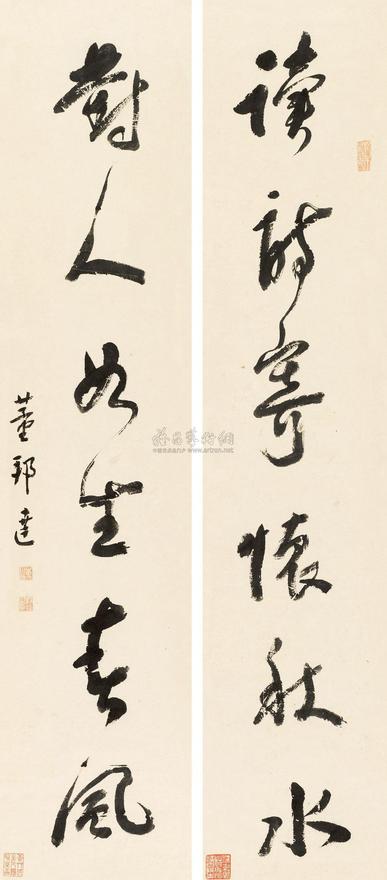 讀詩寄懷秋水
對人如坐春風
董邦達
www.artron.net